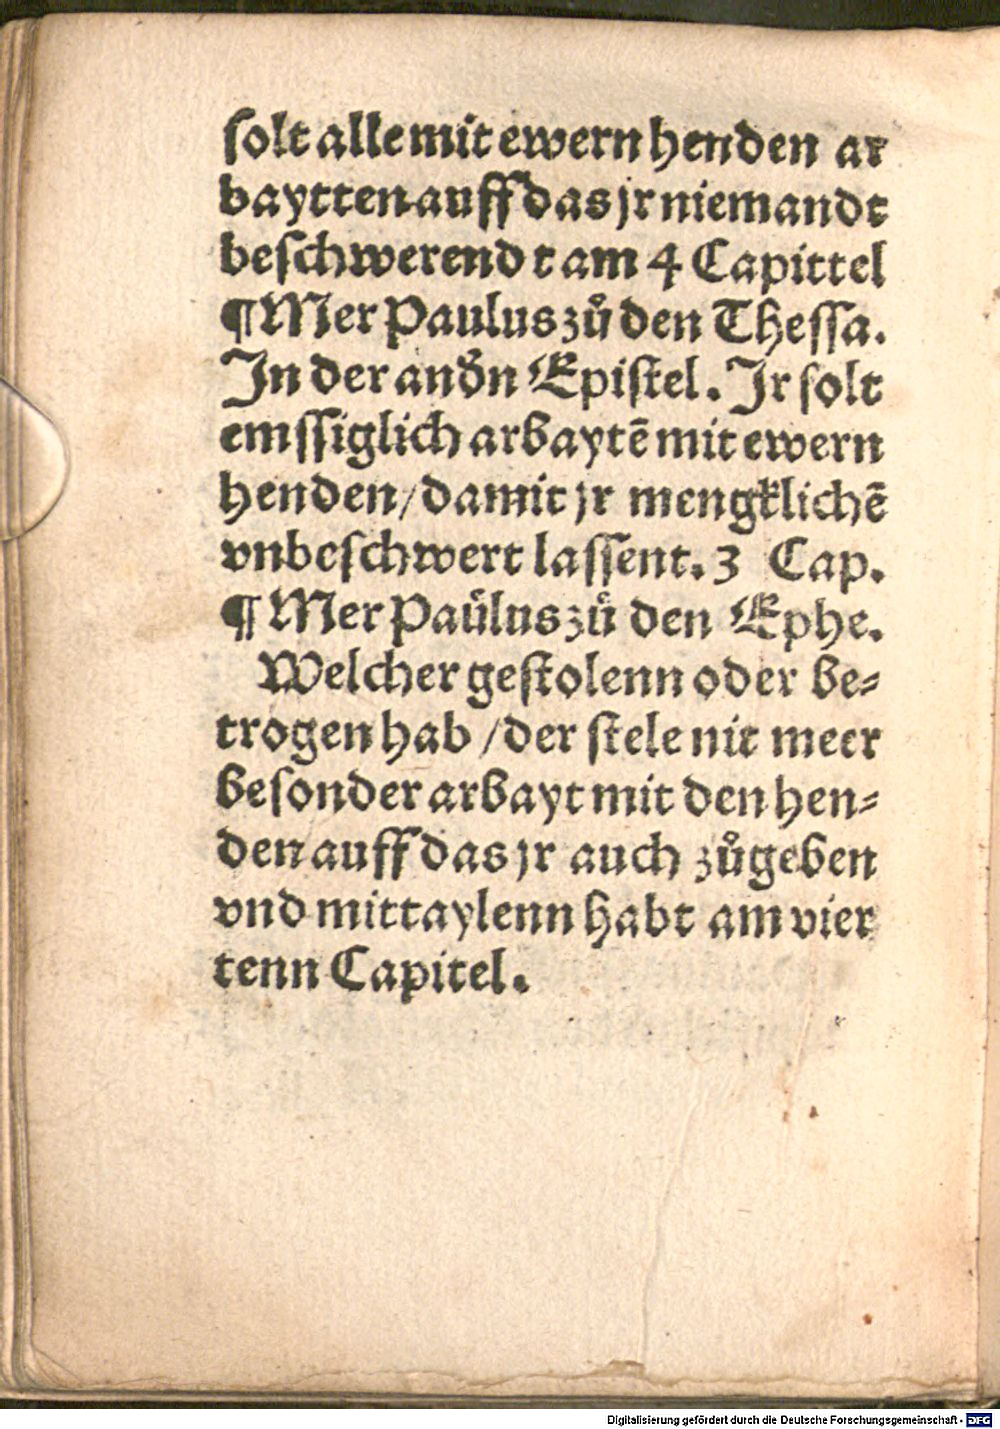 solt alle mit ewern henden ar
baytten auff das jr niemandt
beschwerend t am 4 Capittel
¶ Mer Paulus zuͦ den Thessa.
In der andn̄ Epistel. Jr solt
emssiglich arbaytē mit ewern
henden/damit jr mengklichē
vnbeschwert lassent. 3 Cap.
¶ Mer Pauͤlus zuͦ den Ephe.
Welcher gestolenn oder be⸗
trogen hab /der stele nit meer
besonder arbayt mit den hen⸗
den auff das jr auch zuͦgeben
vnd mittaylenn habt am vier
tenn Capitel.
Digitalisierung gefördert durch die Deutsche Forschungsgemeinschaft - DFG